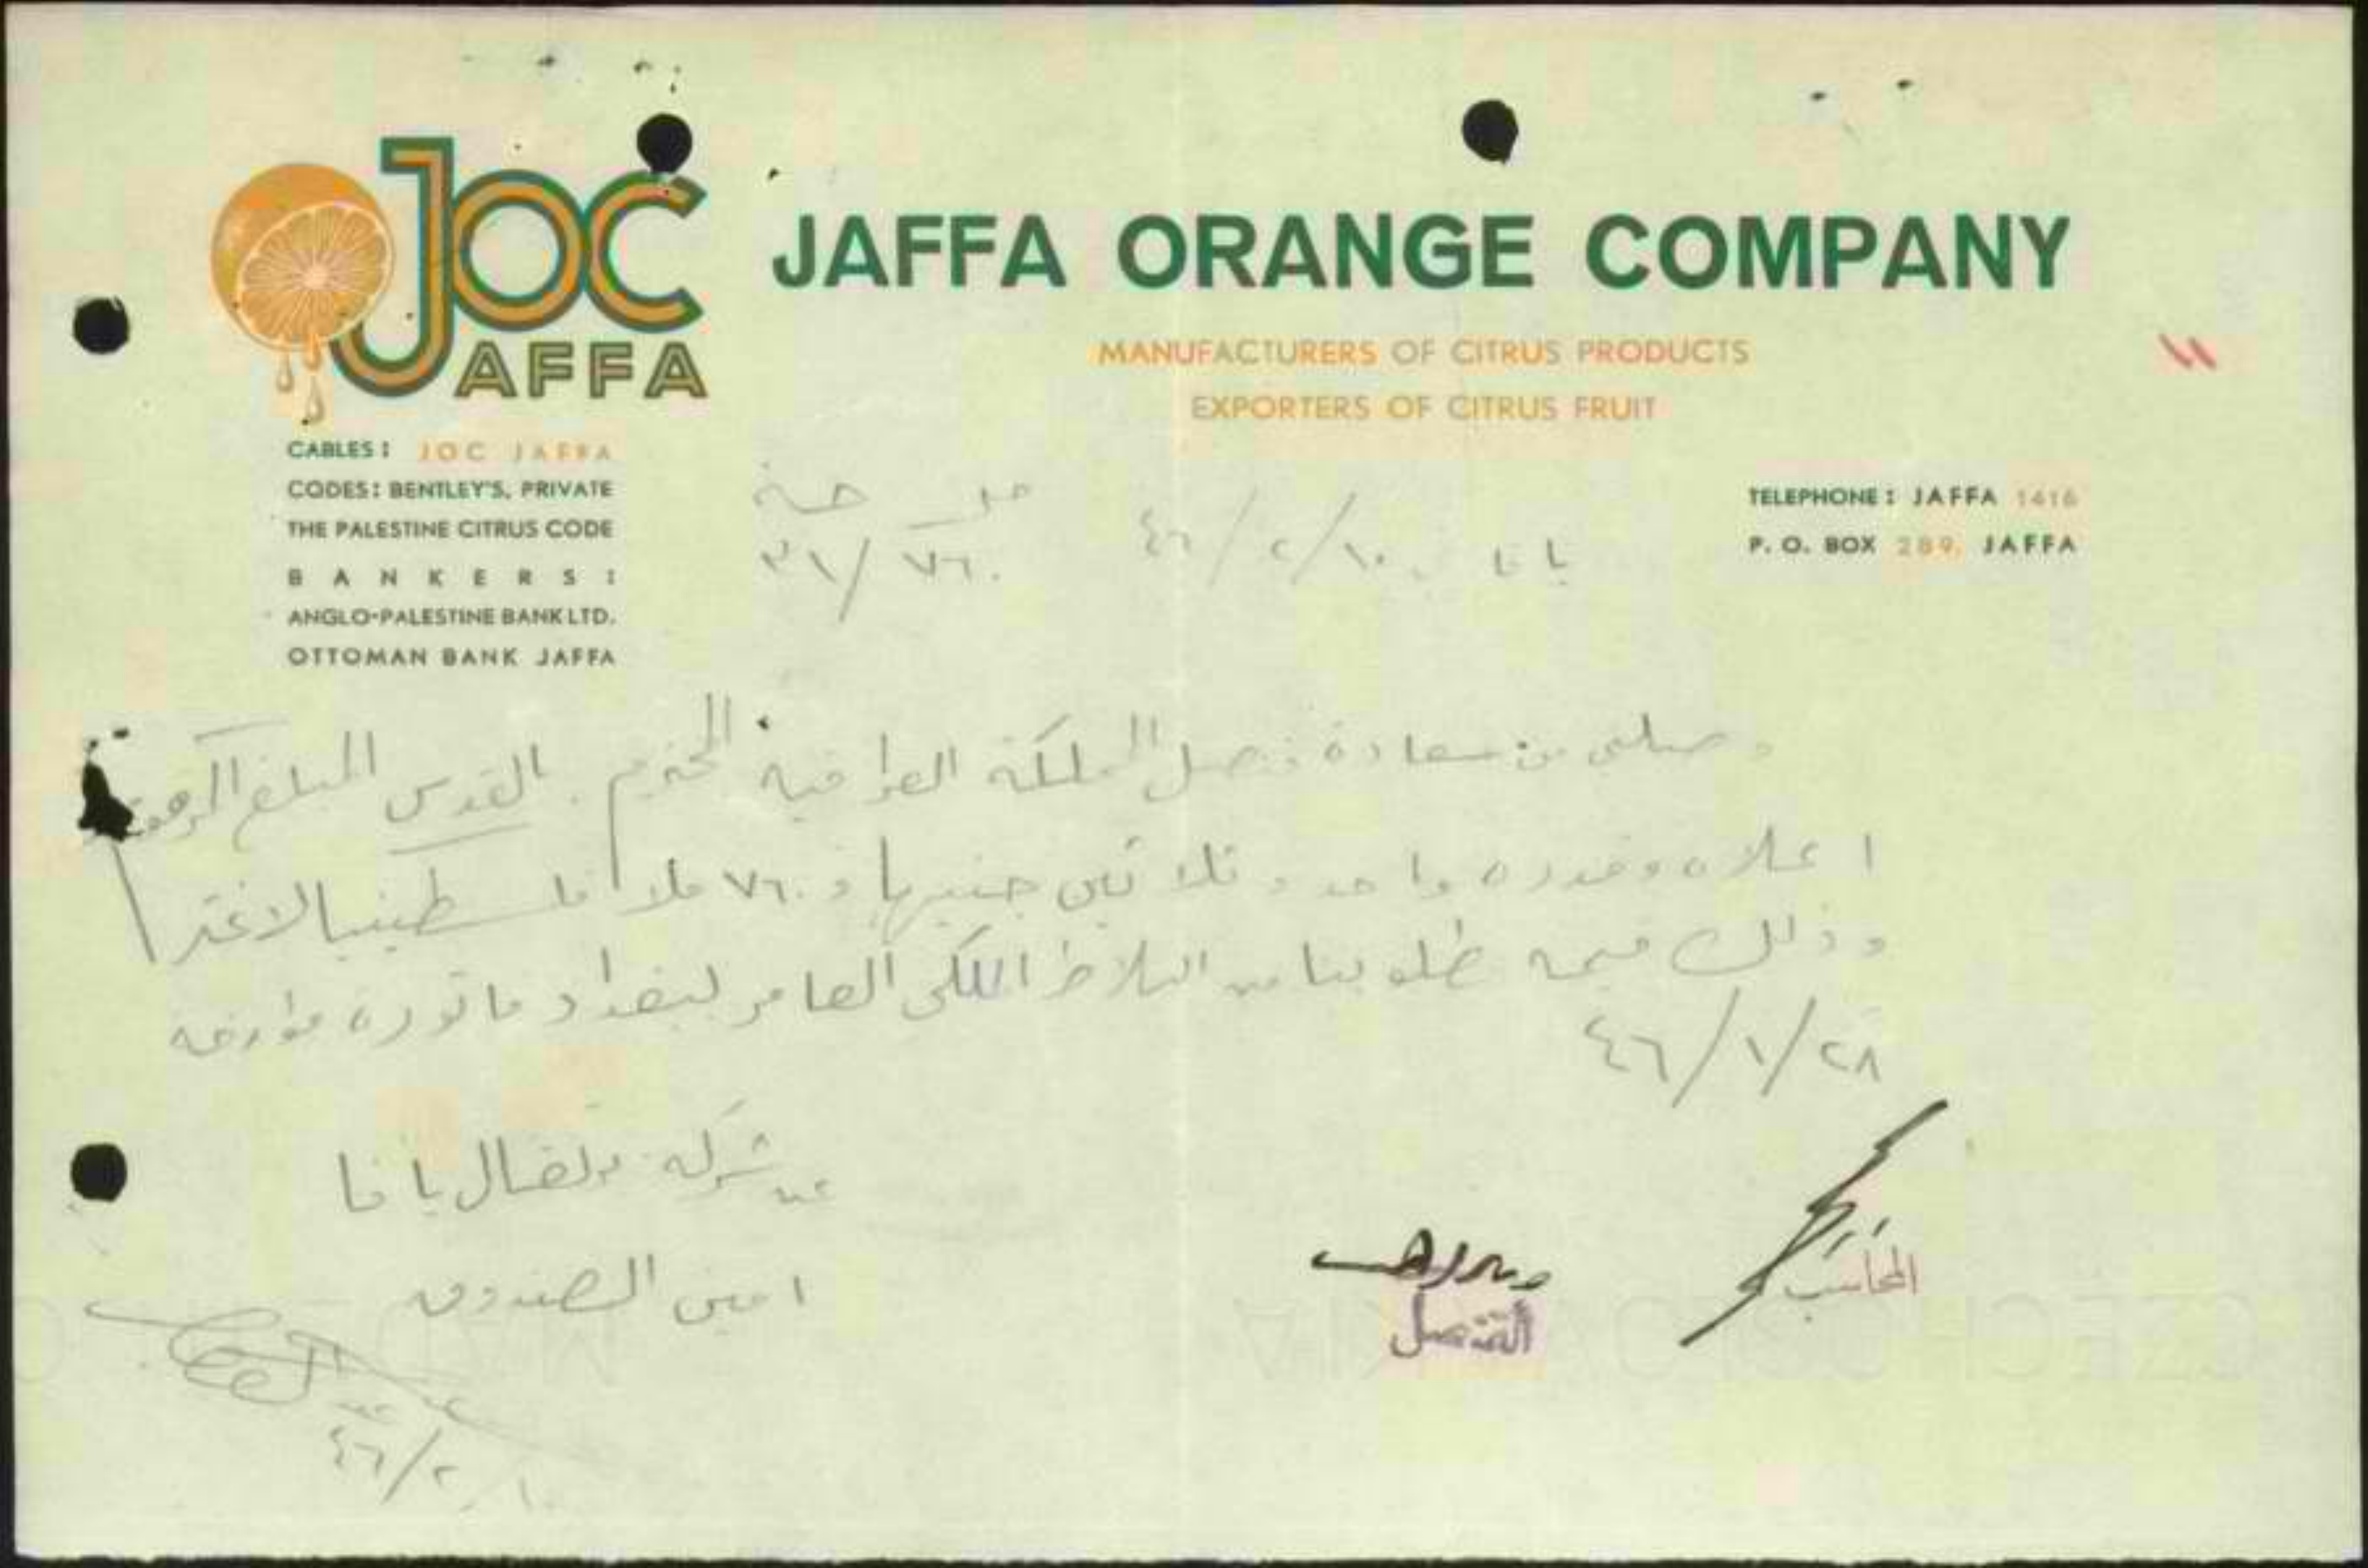 JOC
JAFFA
JAFFA ORANGE COMPANY
MANUFACTURERS OF CITRUS PRODUCTS
EXPORTERS OF CITRUS FRUIT
CABLES: JOC JAFFA
CODES: BENTLEY'S, PRIVATE
THE PALESTINE CITRUS CODE
BANKERS:
ANGLO-PALESTINE BANK LTD.
OTTOMAN BANK JAFFA
TELEPHONE: JAFFA 1416
P. O. BOX 289, JAFFA
١١
يافا ٤٦/٢/١٠
مل جنيه
٣١/٧٦٠
وصلني من سعادة قنصل المملكة العراقية المحترم بالقدس المبلغ المرقوم
اعلاه وقدره واحد وثلاثين جنيها و ٧٦٠ ملا فلسطينيا لاغير
وذلك قيمة طلوبنا من البلاط الملكي العامر ببغداد فاتورة مؤرخه
٤٦/١/٢٨
عن شركة برتقال يافا
امين الصندوق
٤٦/٢/١٠
القنصل
المحاسب
CZECHOSLOVAKIA